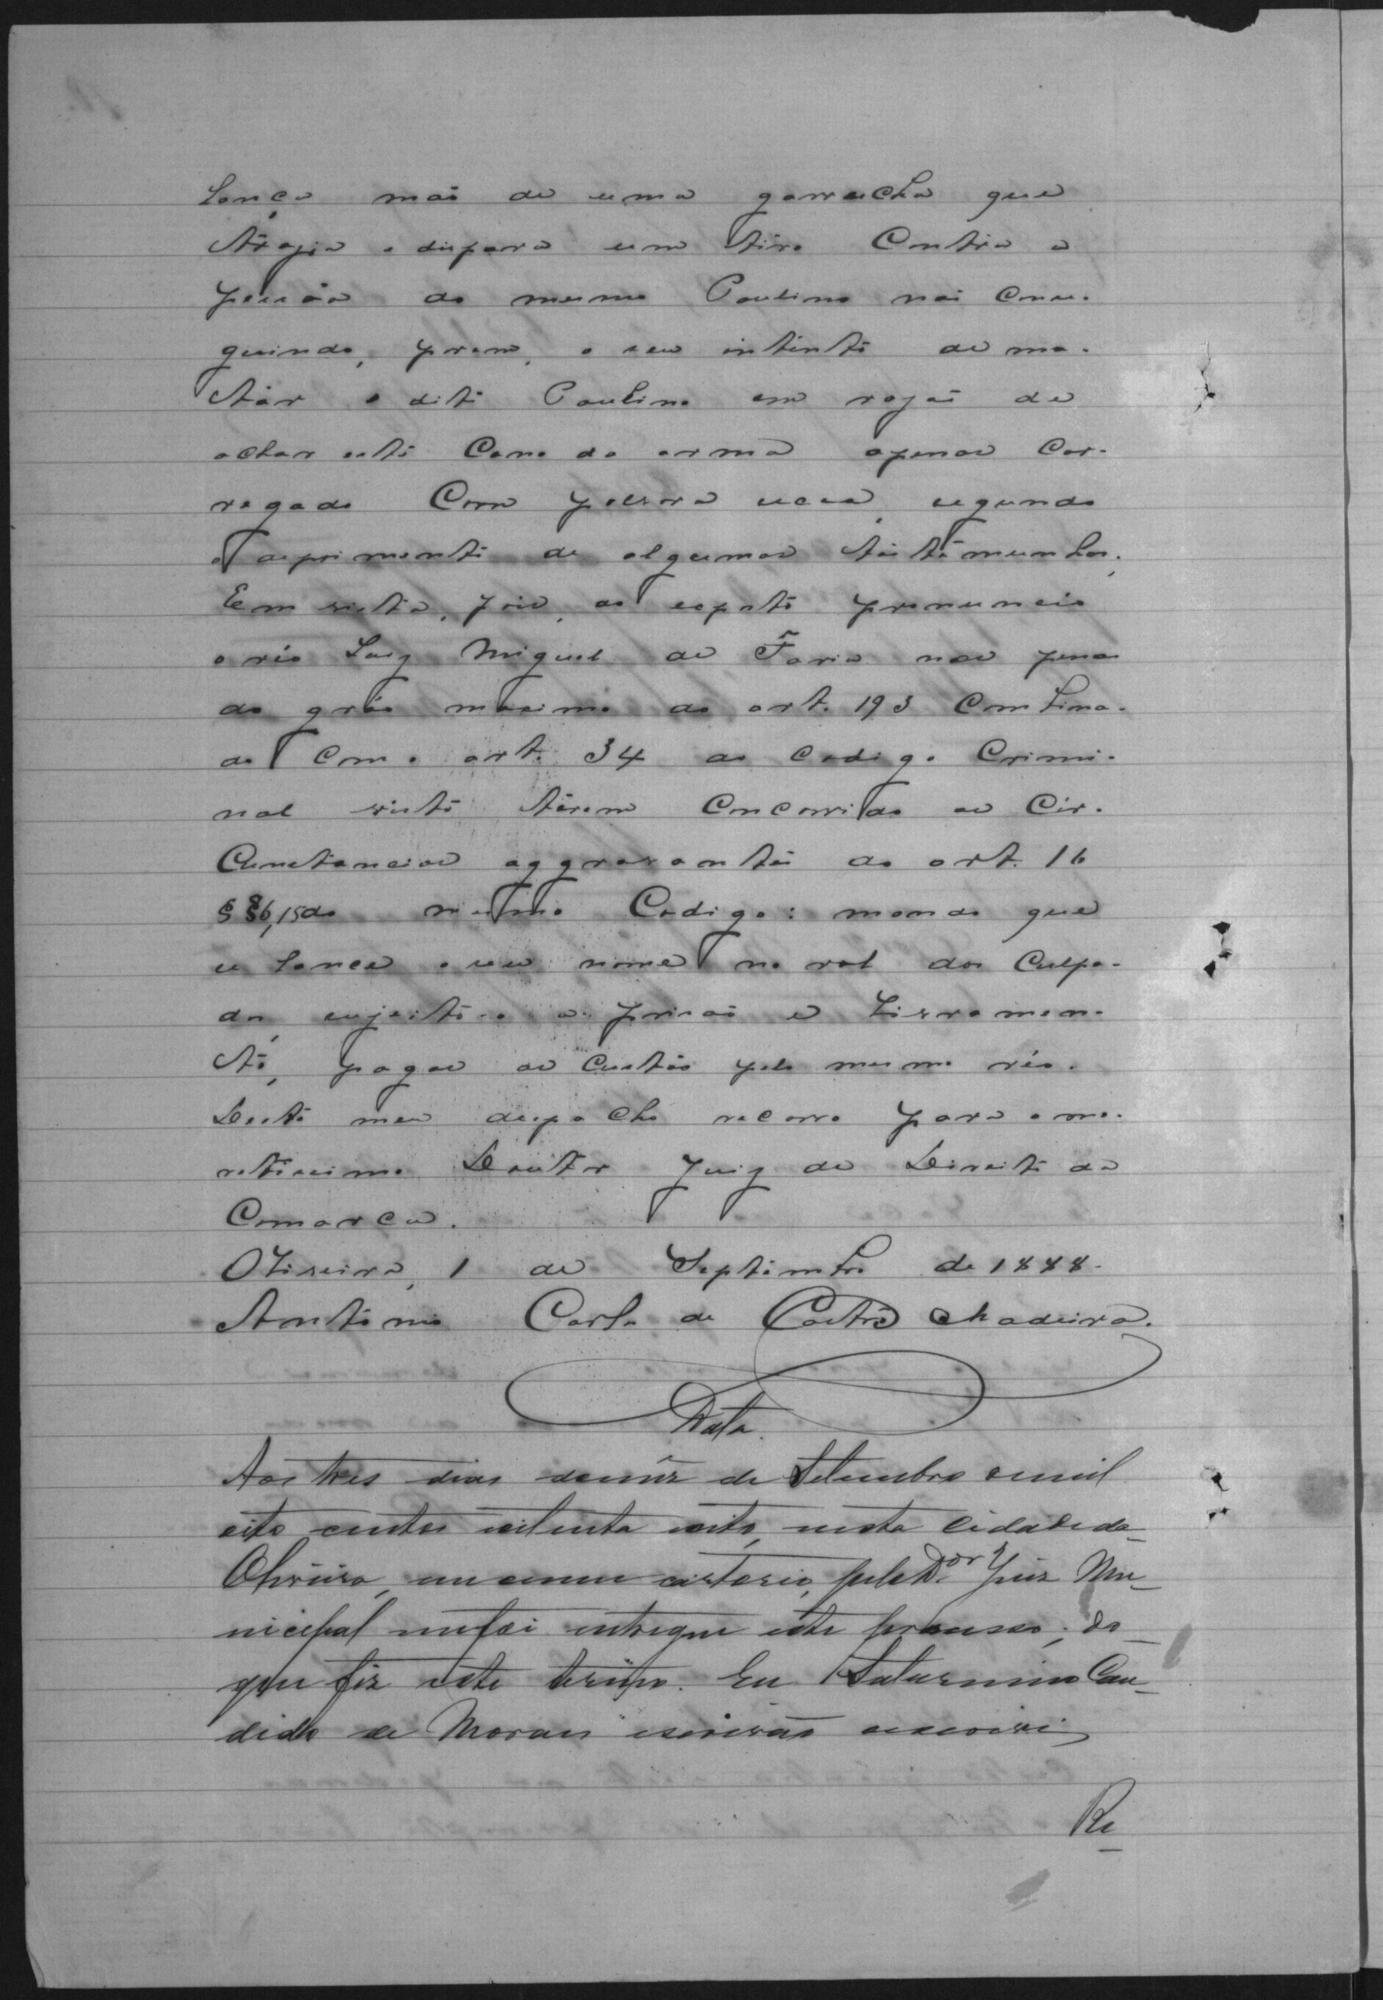 lança mão de uma garrucha que
trazia e dispara um tiro contra a
pessôa do mesmo Paulino não conse-
guindo, porem, o seu intento de ma-
tar o dito Paulino em razão de
achar este cano da arma apenas car-
regado com polvora secca, segundo
o depoimento de algumas testemunhas.
Em vista, pois, do exposto pronuncio
o réo Luiz Miguel de Faria nas penas
do gráo maximo do art. 193 combina-
do com o art. 34 do Codigo Crimi-
nal visto terem concorrido as cir-
cunstancias aggravantes do art. 16
§§ 8, 6, 15 do mesmo Codigo: mando que
se lance o seu nome no rol dos culpa-
dos, sujeito-o a prisão e livramen-
to, pagas as custas pelo mesmo réo.
Deste meu despacho recorro para o me-
retissimo Doutor Juiz de Direito da
Comarca.
Oliveira, 1 de Septembro de 1888.
Antonio Carlos de Castro Madeira.
Data.
Aos tres dias do mêz de Setembro de mil
oito centos e oitenta e oito, nesta cidade da
Oliveira, em o meu cartorio, pelo Dor Juiz Mu-
nicipal me foi entregue este processo; do
que fiz este termo. Eu Saturnino Can-
dido de Moraes escrivão o escrevi
Re